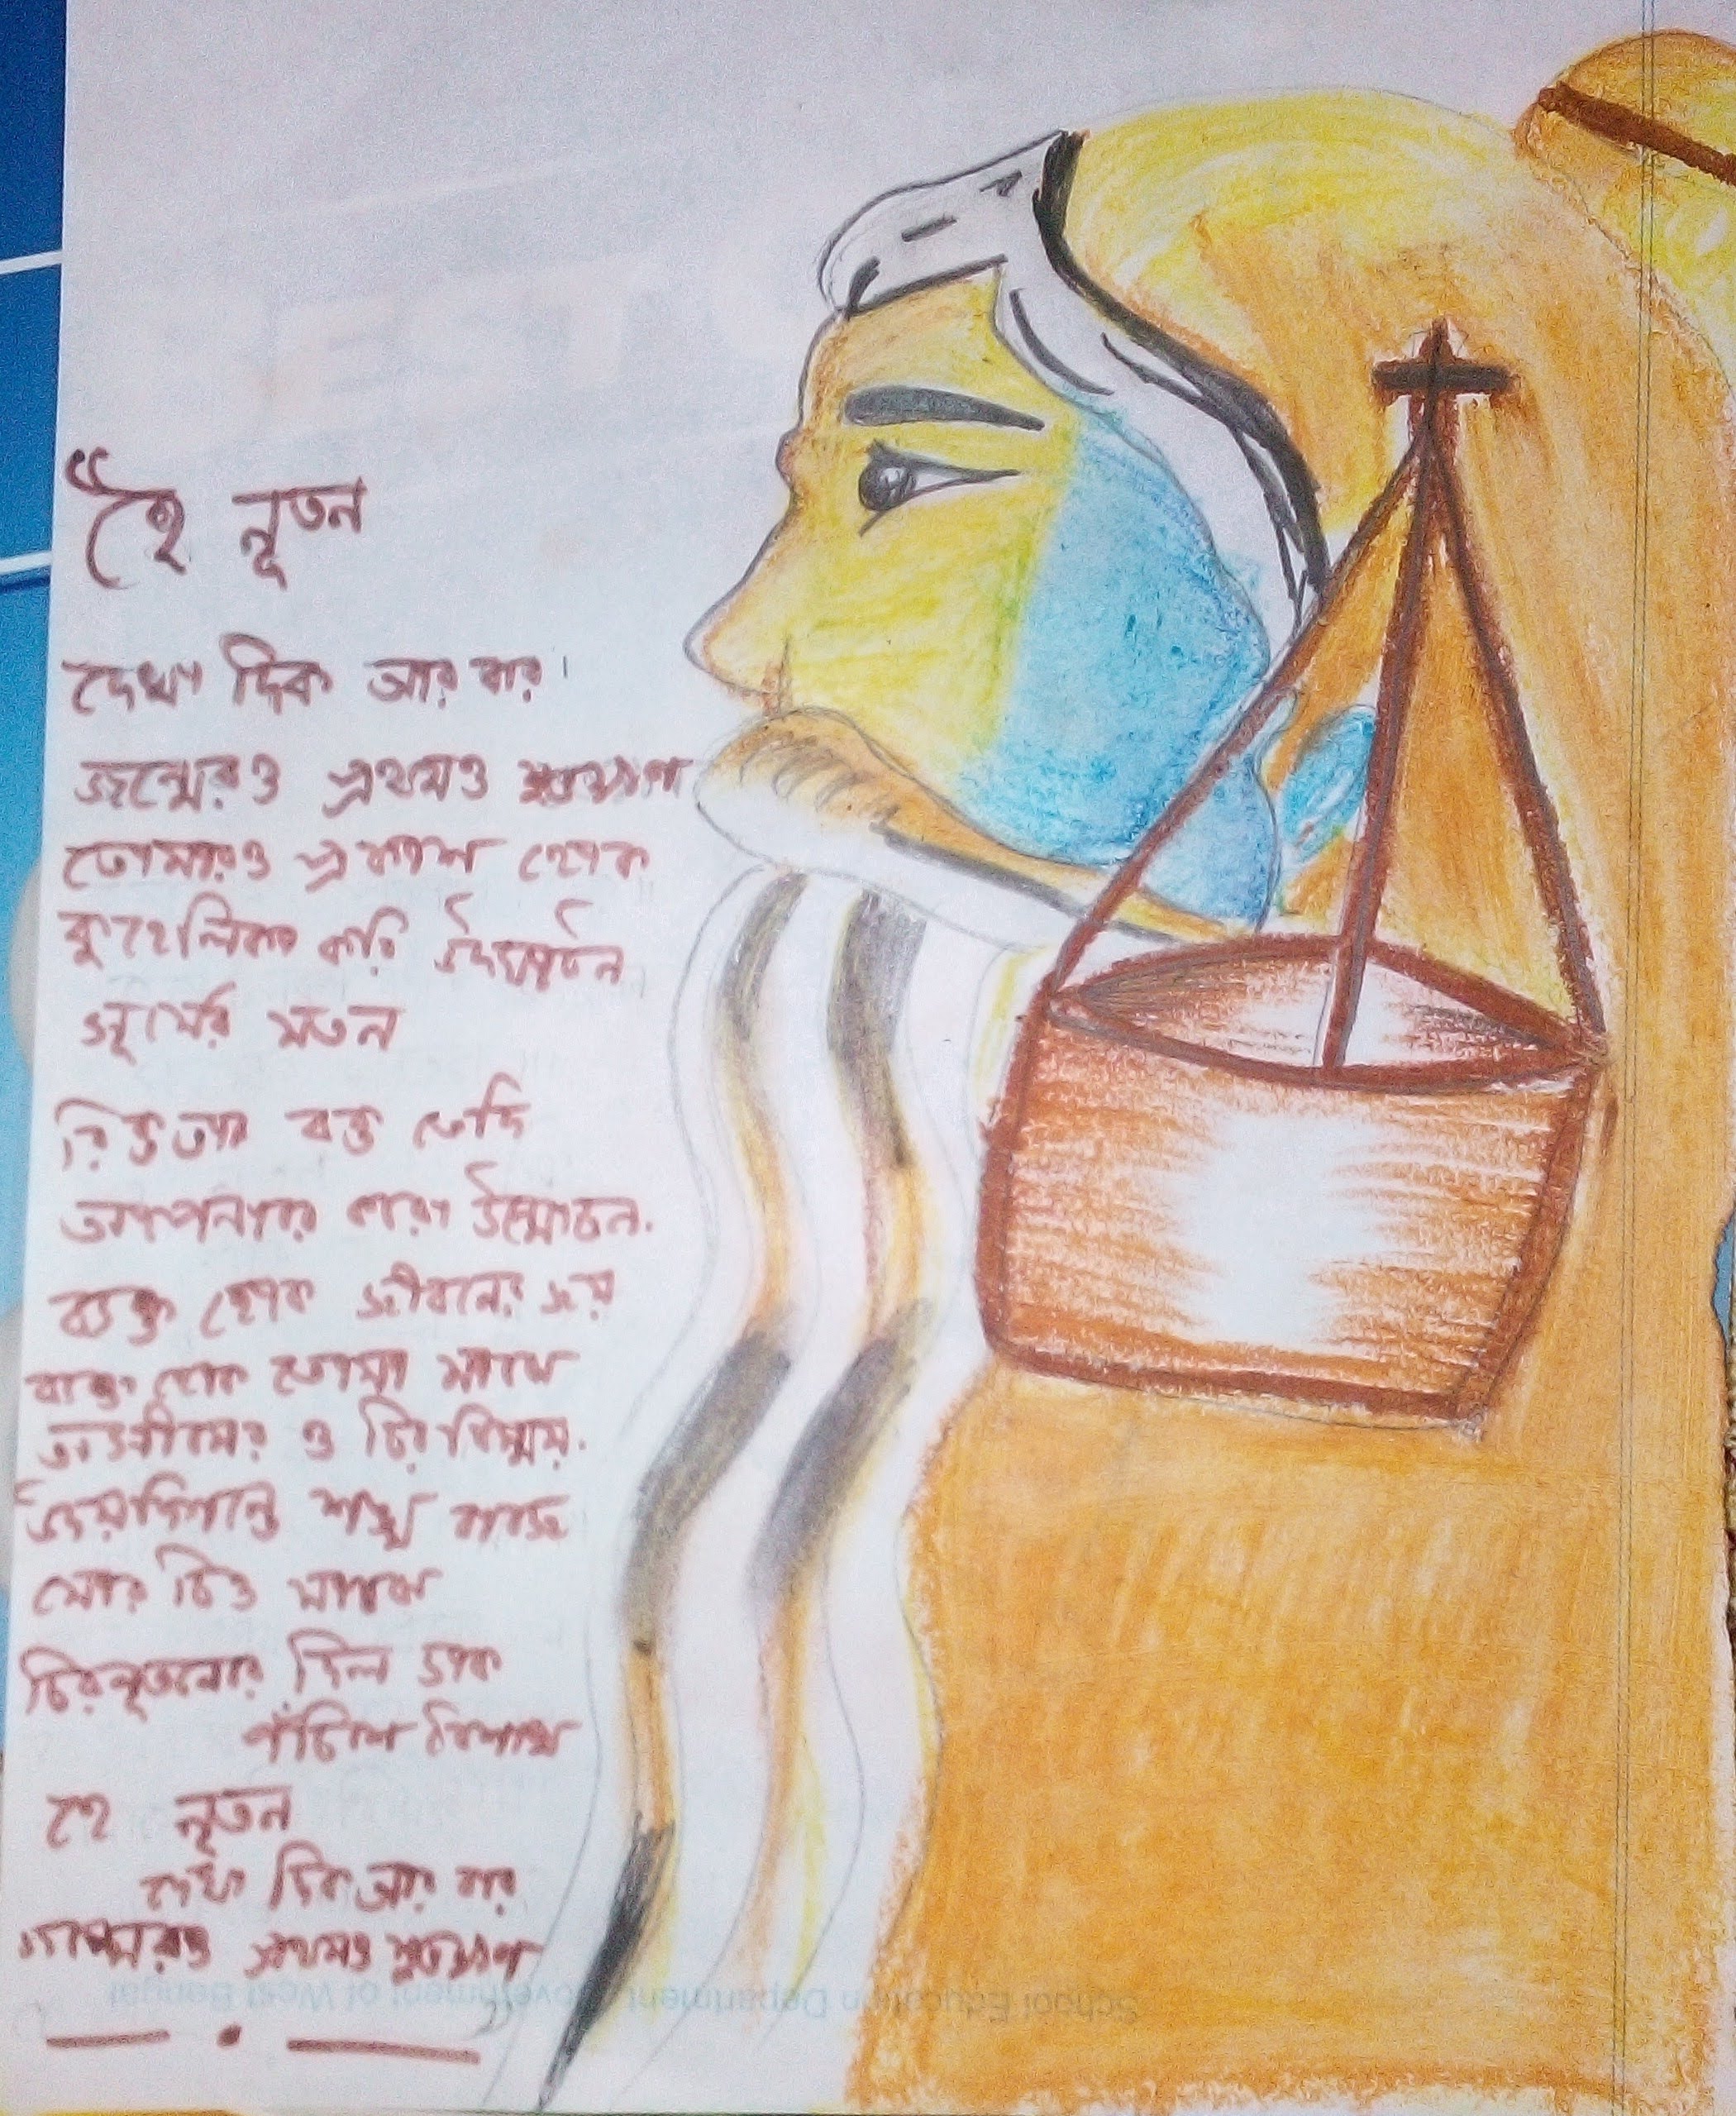 “হে নূতন
দেখা দিক আর বার।
জন্মেরও প্রথমও শুভক্ষণ
তোমারও প্রকাশ হোক
কুহেলিকা করি উদঘাটন
সূর্যের মতন
রিক্ততার বক্ষ ভেদি
আপনারে করো উন্মোচন.
ব্যক্ত হোক জীবনের জয়
ব্যক্ত হোক তোমা মাঝে
অসীমের ও চির বিস্ময়.
উদয়দিগন্তে শঙ্খ বাজে
মোর চিত্ত মাঝে
চিরনূতনেরে দিল ডাক
পঁচিশে বৈশাখ
হে নূতন
দেখা দিক আর বার
প্রথমও শুভক্ষণ”
School Education Department Government of West Bengal